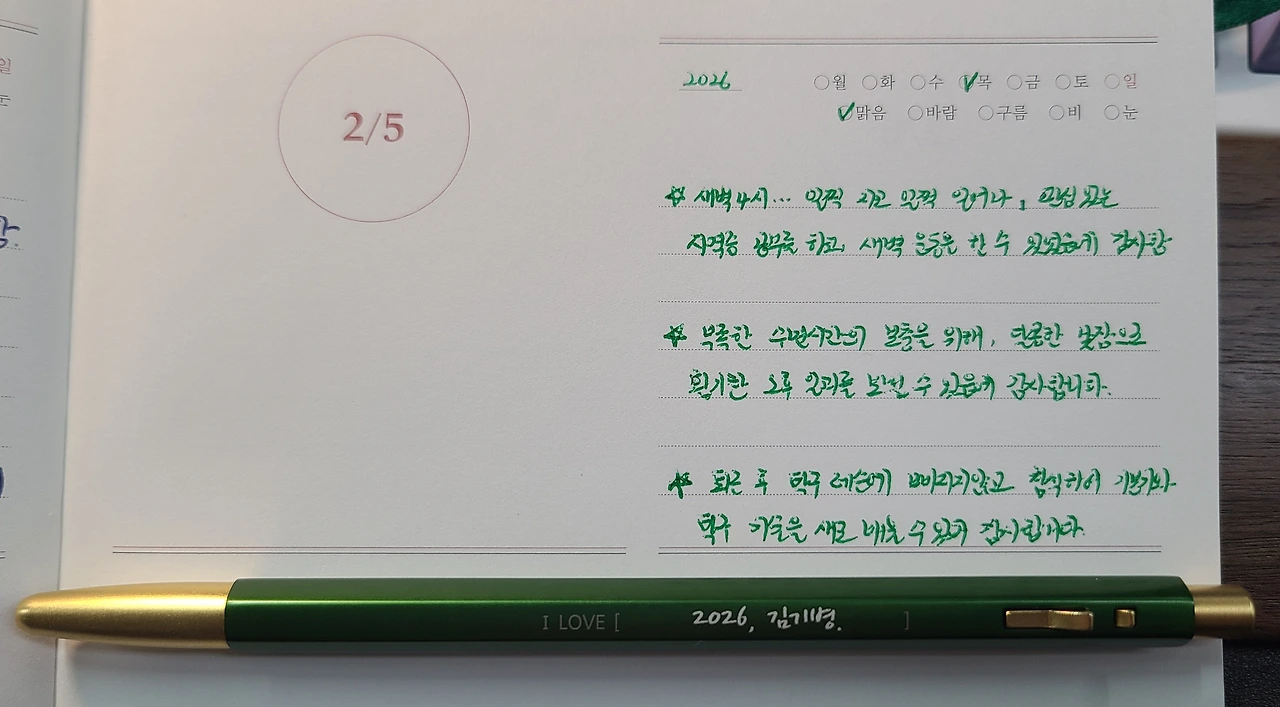 2/5
2026 월 화 수 목 금 토 일
맑음 바람 구름 비 눈
새벽4시... 일찍 자고 일찍 일어나, 관심있는
자격증 공부를 하고, 새벽 운동을 할 수 있었음에 감사함
부족한 수면시간의 보충을 위해, 달콤한 낮잠으로
활기찬 오후 일과를 보낼 수 있음에 감사합니다.
퇴근 후 탁구 레슨에 빠지지않고 참석하여
탁구 기술을 새로 배울 수 있어 감사합니다.
I LOVE [ 2026, 김기병. ]
일